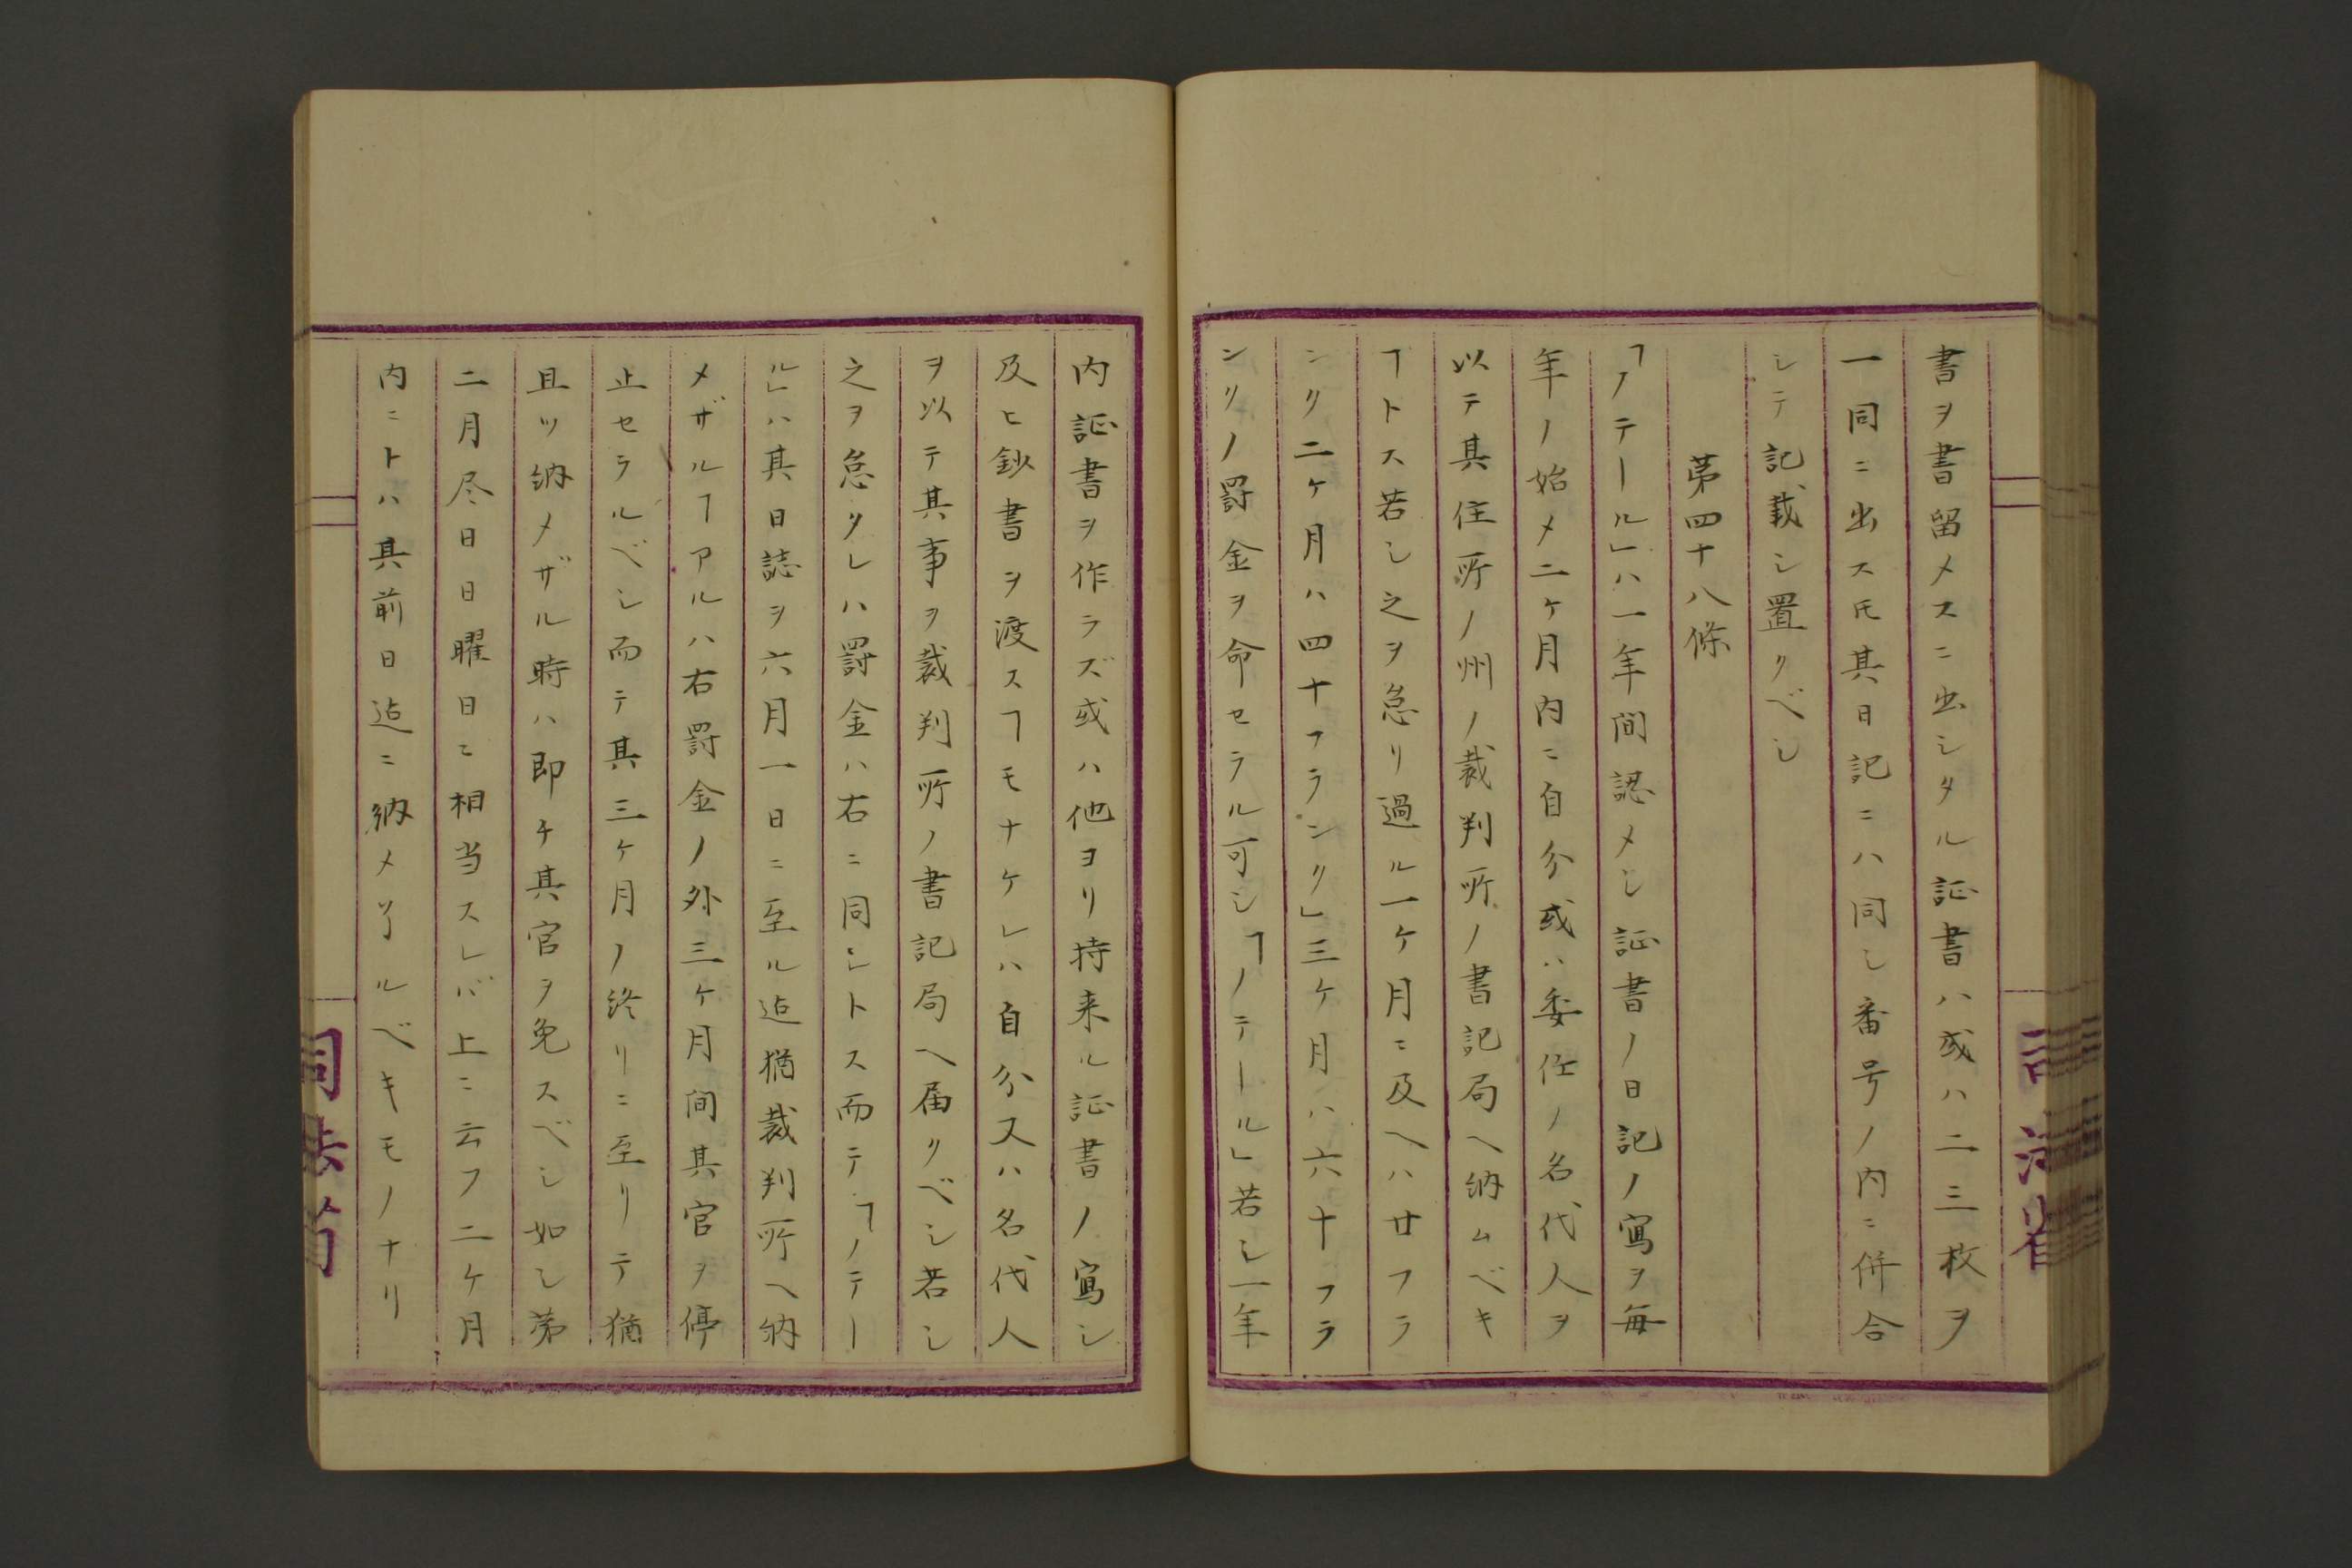 書ヲ書留メスニ出シタル証書ハ或ハ二三枚ヲ
一同ニ出ス𪜈其日記ニハ同シ番号ノ内ニ併合
シテ記載シ置クベシ
第四十八條
「ノテール」ハ一年間認メシ証書ノ日記ノ寫ヲ毎
年ノ始メ二ケ月内ニ自分或ハ委任ノ名代人ヲ
以テ其住所ノ州ノ裁判所ノ書記局ヘ納ムベキ
ヿトス若シ之ヲ怠リ過ル一ケ月ニ及ヘハ廿フラ
ンク二ケ月ハ四十フランク」三ケ月ハ六十フラ
ンクノ罰金ヲ命セラル可シ「ノテール」若シ一年
内証書ヲ作ラズ或ハ他ヨリ持来ル証書ノ寫シ
及ヒ鈔書ヲ渡スヿモナケレハ自分又ハ名代人
ヲ以テ其事ヲ裁判所ノ書記局ヘ届クベシ若シ
之ヲ怠タレハ罰金ハ右ニ同シトス而テ「ノテー
ル」ハ其日誌ヲ六月一日ニ至ル迠猶裁判所ヘ納
メザルヿアルハ右罰金ノ外三ケ月間其官ヲ停
止セラルベシ而テ其三ケ月ノ終リニ至リテ猶
且ツ納メザル時ハ即チ其官ヲ免スベシ如シ第
二月尽日日曜日ニ相当スレバ上ニ云フ二ケ月
内ニトハ其前日迠ニ納メルベキモノナリ
司法省